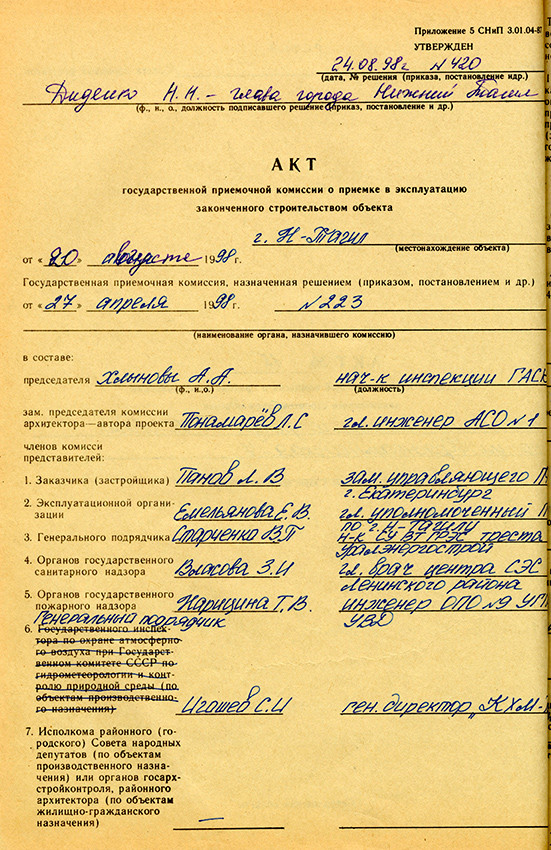 Приложение 5 СНиП 3.01.04-87
УТВЕРЖДЕН
24.08.98г. №420
(дата, № решения (приказа, постановление идр.)
Диденко Н.Н. – глава города Нижний Тагил
(ф., и., о., должность подписавшего решение (приказ, постановление и др.)
АКТ
государственной приемочной комиссии о приемке в эксплуатацию
законченного строительством объекта
г. Н-Тагил
(местонахождение объекта)
от «20» августа 1998 г.
Государственная приемочная комиссия, назначенная решением (приказом, постановлением и др.)
от «27» апреля 1998 г. №223
(наименование органа, назначившего комиссию)
в составе:
председателя Хлыновы А.А. нач-к инспекции ГАСК
(ф., и.,о.) (должность)
зам. председателя комиссии
архитектора—автора проекта Понамарёв Л.С гл. инженер АСО №1
членов комисси
представителей:
1. Заказчика (застройщика) Панов Л.В зам. управляющего
г. Екатеринбург
2. Эксплуатационной органи-
зации Емельянова Е.В. гл. уполномоченный
по г. Н-Тагилу
3. Генерального подрядчика Старченко В.П н-к СУ ВТГРЭС треста
Уралэнергострой
4. Органов государственного
санитарного надзора Власова З.И гл. врач центра СЭС
Ленинского района
5. Органов государственного
пожарного надзора Карицина Т.В. инженер ОПО №9
Генеральный подрядчик УВД
6. Государственного инспек-
тора по охране атмосферно-
го воздуха при Государст-
венном комитете СССР по
гидрометеорологии и конт-
ролю природной среды (по
объектам производственно-
го назначения) Игошев С.И ген. директор „КХМ-
7. Исполкома районного (го-
родского) Совета народных
депутатов (по объектам
производственного назна-
чения) или органов госарх-
стройконтроля, районного
архитектора (по объектам
жилищно-гражданского
назначения) —